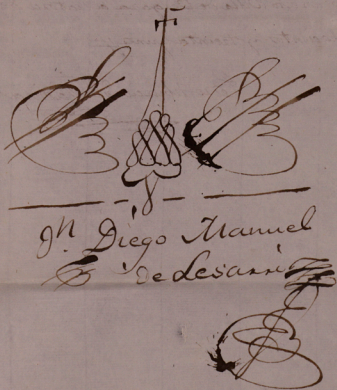 Jn Diego Manuel
de Lesarri